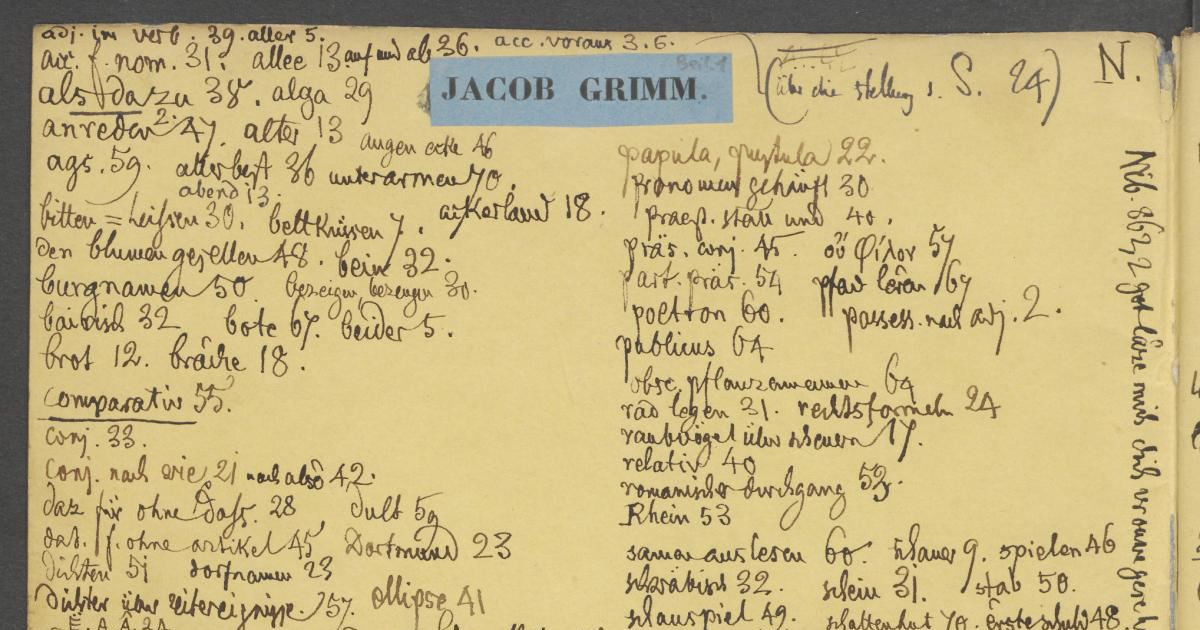 adj. im verb. 39. aller 5.
acc. f. nom. 31. allee 13 auf und ab 36. acc. voraus 3. 6.
als dazu 38. alga 29
anreden 2. 47. alter 13
augen ecke 46
ags. 59. allerbest 36 unterarmen 70.
abend 13.
bitten = heissen 30. bettküssen 7. ackerland 18.
den blumen gesellen 48. bein 32.
burgnamen 50. bezeigen, bezeugen 30.
bairisch 32 bote 67. beider 5.
brot 12. brâche 18.
comparativ 55.
conj. 33.
conj. nach wie 21 nach also 42.
daz für ohne dass. 28 dult 59
dat. f. ohne artikel 45 Dortmund 23
dichten 51 dorfnamen 23
dichter über zeitereignisse. 57. ellipse 41
JACOB GRIMM.
(über die stellung s. S. 24)
N.
papula, pustula 22.
pronomen gehäuft 30
praep. statt und 40.
präs. conj. 45. οὐ φίλον 57
part. präs. 54 pfad lêren 69
poetron 60. possess. nach adj. 2.
publicus 64
obsc. pflanzennamen 64
rad legen 31. rechtsformeln 24
raubvögel über scheuern 17.
relativ 40
romanischer durchgang 52.
Rhein 53
samen auslesen 60. schauer 9. spielen 46
schwäbisch 32. schein 31. stab 50.
schauspiel 49. schattenhut 70. erste schuld 48.
Nib. 862, 2 got lâze mich dich vrouwe